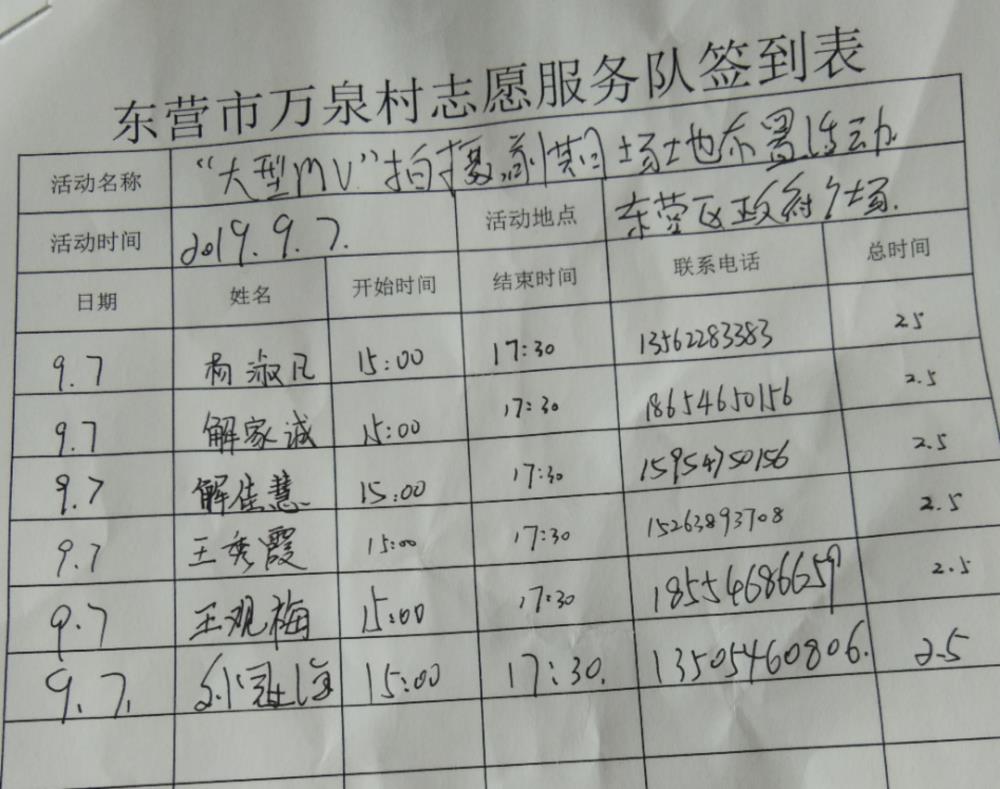 东营市万泉村志愿服务队签到表
活动名称 “大型MV”拍摄前期场地布置活动
活动时间 2019.9.7. 活动地点 东营区政府广场.
日期 姓名 开始时间 结束时间 联系电话 总时间
9.7 杨淑凡 15:00 17:30 13562283383 25
9.7 解家诚 15:00 17:30 18654650156 2.5
9.7 解佳慧 15:00 17:30 15954750156 2.5
9.7 王秀霞 15:00 17:30 15263893708 2.5
9.7 王观梅 15:00 17:30 18554686659 2.5
9.7. 孙冠海 15:00 17:30. 13505460806. 2.5